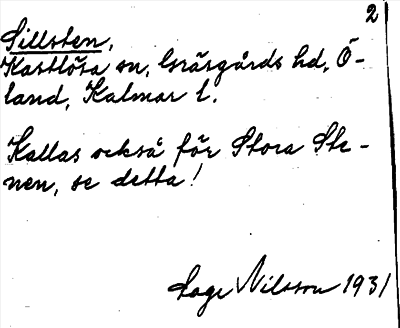 2
Sillsten,
Kastlösa sn, Gräsgårds hd, Ö-
land, Kalmar l.
Kallas också för Stora Ste-
nen, se detta!
Lage Nilsson 1931